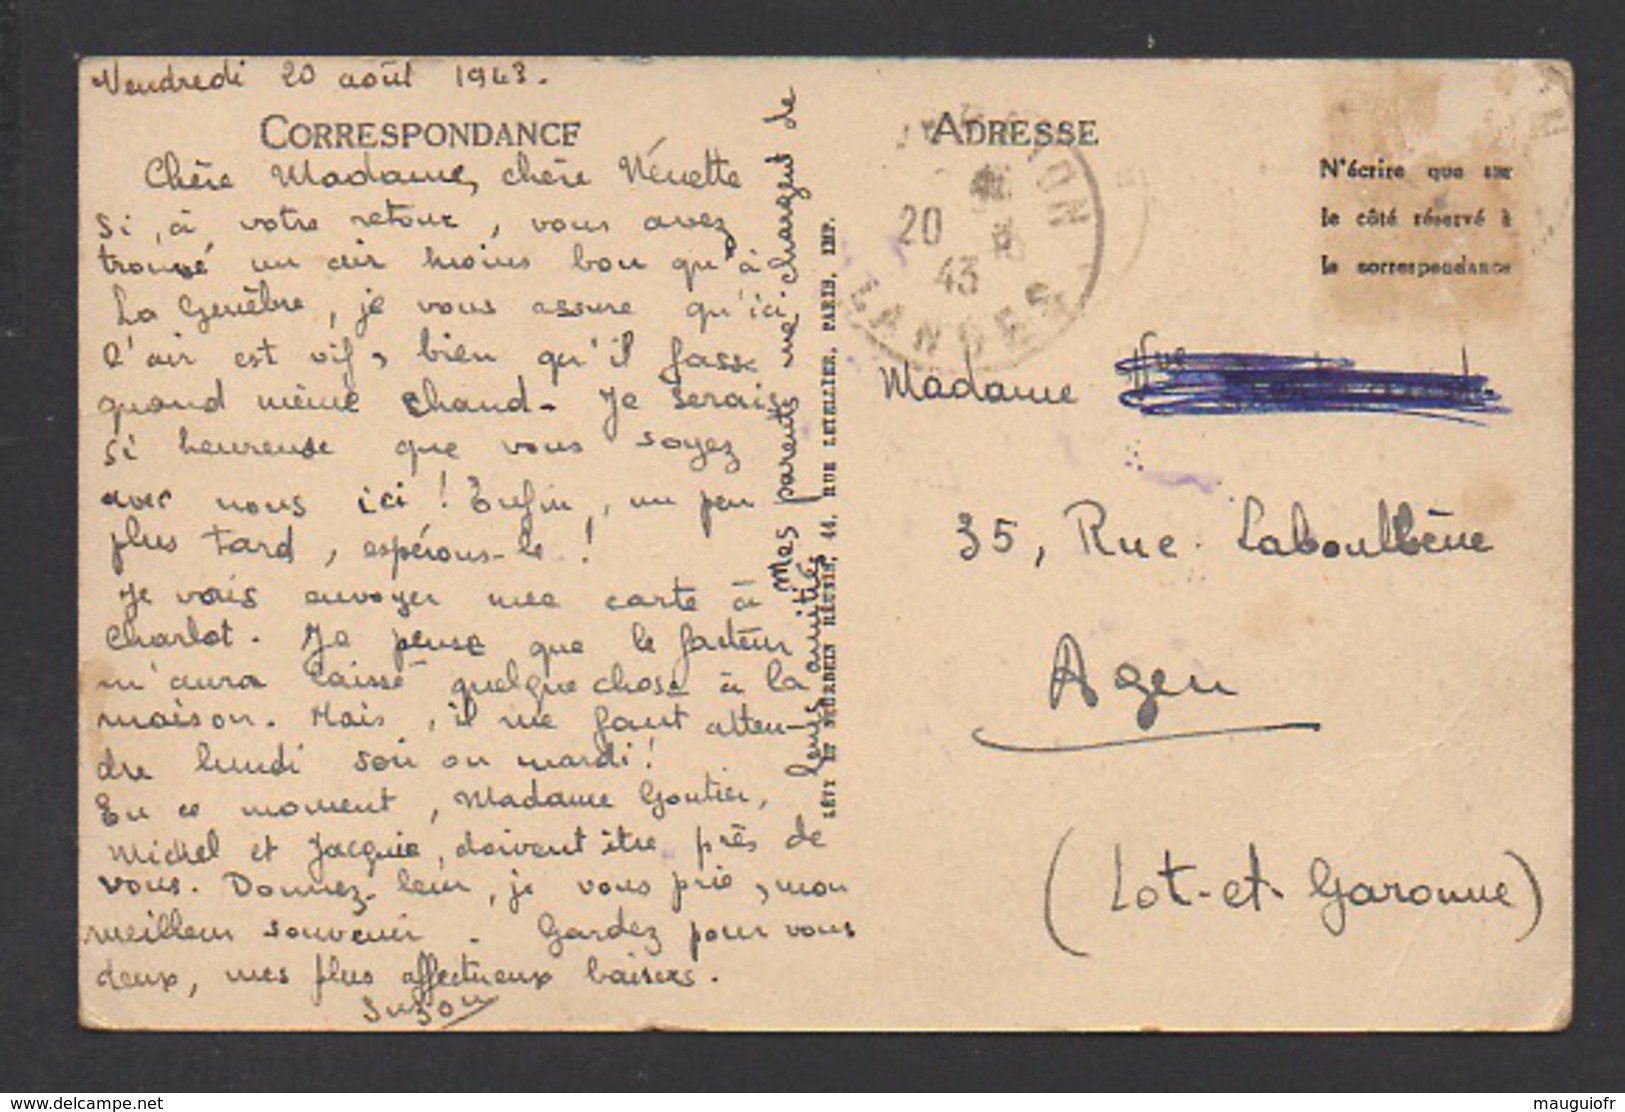 Vendredi 20 août 1943.
CORRESPONDANCE
Chère Madame, chère Nénette
Si, à votre retour, vous avez
trouvé un air moins bon qu'à
La Genèbre, je vous assure qu'ici
l'air est vif, bien qu'il fasse
quand même chaud. Je serais
si heureuse que vous soyez
avec nous ici ! Enfin, un peu
plus tard, espérons-le !
Je vais envoyer une carte à
Charlot. Je pense que le facteur
m'aura laissé quelque chose à la
maison. Mais, il me faut atten-
dre lundi soir ou mardi !
En ce moment, Madame Goutier,
Michel et Jacquie, doivent être près de
vous. Donnez-leur, je vous prie, mon
meilleur souvenir. Gardez pour vous
deux, mes plus affectueux baisers.
Suzon
Mes parents me chargent de
leurs amitiés
LÉVY ET NEURDEIN RÉUNIS, 44, RUE LETELLIER, PARIS, IMP.
ADRESSE
20
43
LANDES
N'écrire que sur
le côté réservé à
la correspondance
Madame
35, Rue Laboulbène
Agen
(Lot-et-Garonne)
© delcampe.net
mauguiofr